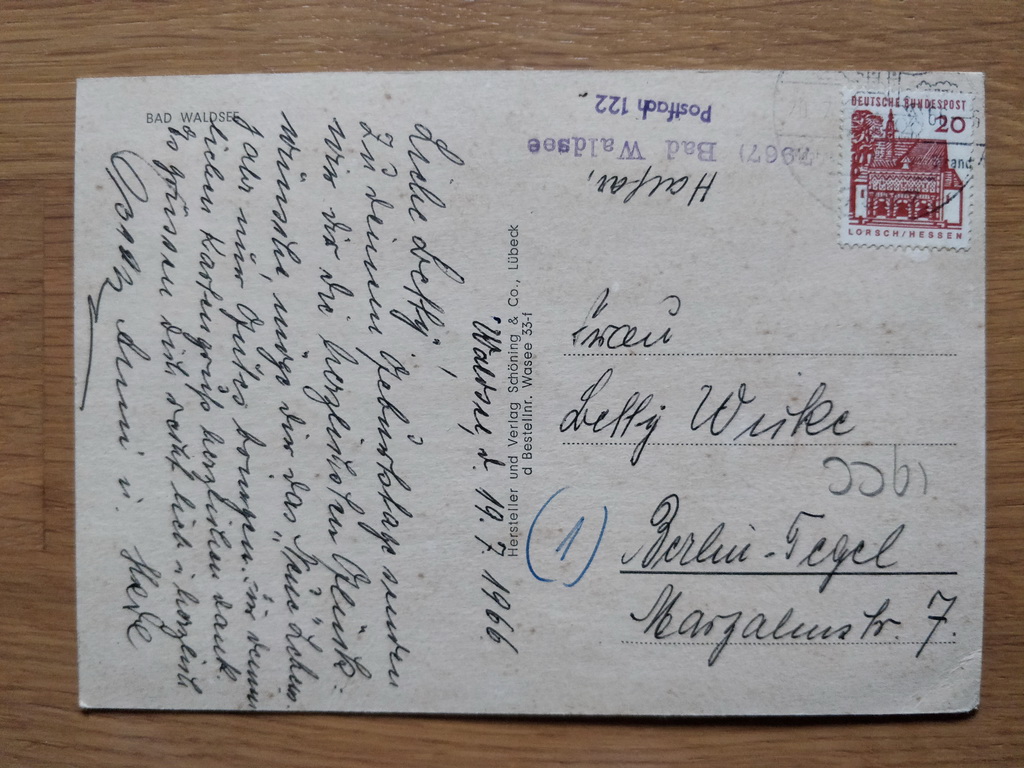 BAD WALDSEE
Waldsee, d. 19.7.1966
Liebe Betty,
Zu deinem Geburtstage senden
Wir dir die herzlichsten Glück-
wünsche, möge dir das "Neue" Lebens-
jahr nur Gutes bringen. für deinen
lieben Kartengruß herzlichen Dank.
Es grüssen dich recht lieb u. herzlich
Anni u.
Hersteller und Verlag Schöning & Co., Lübeck
Bestellnr. Wasee 33-f
(7967) Bad Waldsee
Postfach 122
DEUTSCHE BUNDESPOST
20
LORSCH/HESSEN
Frau
Betty
(1)
Berlin-Tegel
7.